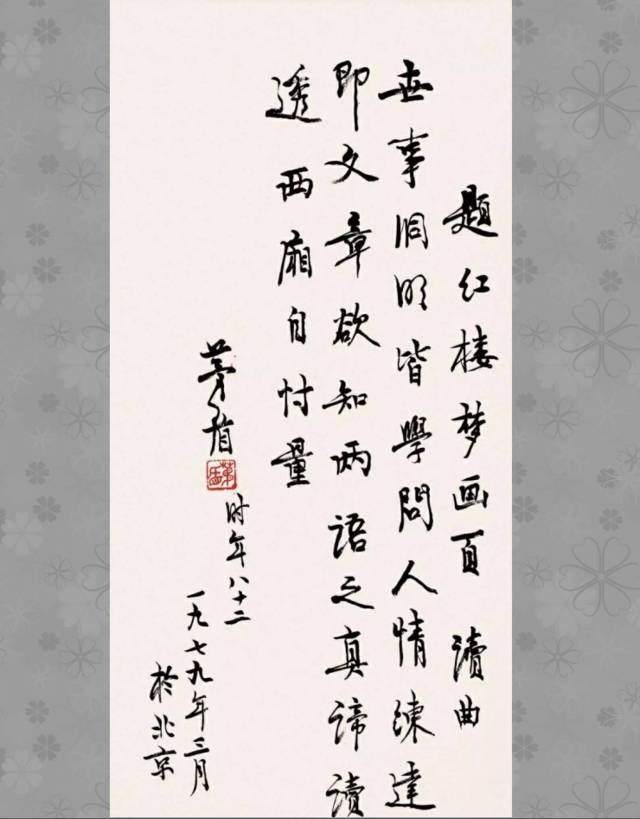 题红楼梦画页 读曲
世事洞明皆學問人情練達
即文章欲知两语之真谛读
透西廂自忖量
茅盾
时年八十二
一九七九年三月
於北京